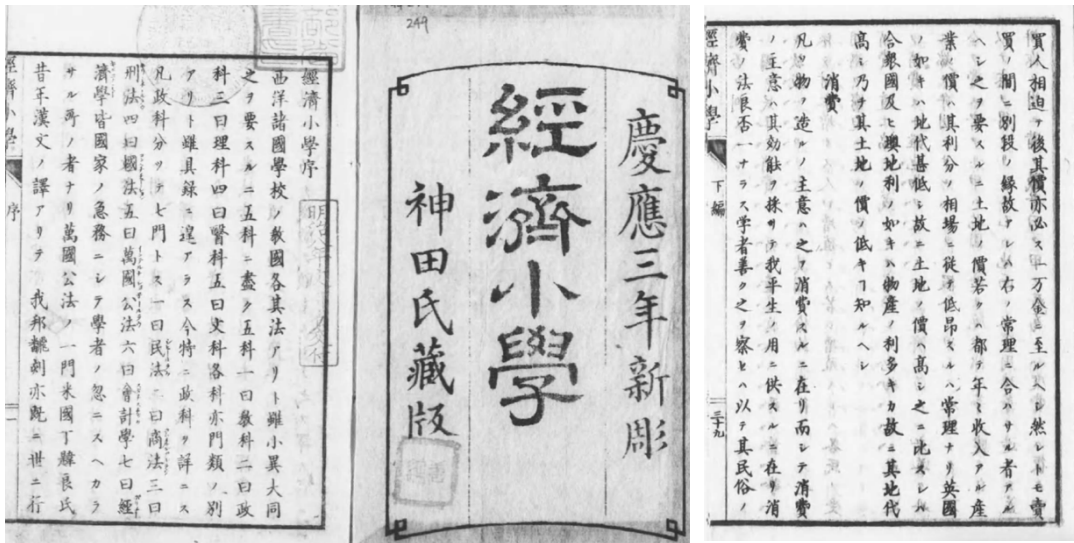 慶應三年新彫
經濟小學
神田氏藏版
經濟小學序
西洋諸國學校ノ敎國各其法アリト雖小異大同
之ヲ要スルニ五科ニ盡ク五科一曰敎科二曰政
科三曰理科四曰醫科五曰文科各科亦門類ノ別
アリト雖具録ニ遑アラス今特ニ政科ヲ詳ニス
凡政科分ツテ七門トス一曰民法二曰商法三曰
刑法四曰國法五曰萬國公法六曰會計學七曰經
濟學皆國家ノ急務ニシテ學者ノ忽ニスヘカラ
サル所ノ者ナリ萬國公法ノ一門米國丁韙良氏
昔年漢文ノ譯アリテ 我邦翻刻亦既ニ世ニ行
經濟小學 序 一
249
買人相迫テ後其價亦必ス一万金ニ至ルヘシ然レトモ賣
買ノ間ニ別段ノ縁故アレハ右ノ常理ニ合ハサル者アル
ヘシ之ヲ要スルニ土地ノ價若クハ都テ年々收入アル産
業ノ價ハ其利分ノ相場ニ從テ低昂スルハ常理ナリ英國
ノ如キハ地代甚低シ故ニ土地ノ價ハ高シ之ニ比スレハ
合衆國及ヒ墺地利ノ如キハ物産ノ利多キカ故ニ其地代
高シ乃チ其土地ノ價ノ低キヿ知ルヘシ
消費
凡ソ物ヲ造ルノ主意ハ之ヲ消費スルニ在リ而シテ消費
ノ主意ハ其効能ヲ採リテ我平生ノ用ニ供スルニ在リ消
費ノ法良否一ナラス学者善ク之ヲ察セハ以テ其民俗ノ
經濟小學 下編 三十九